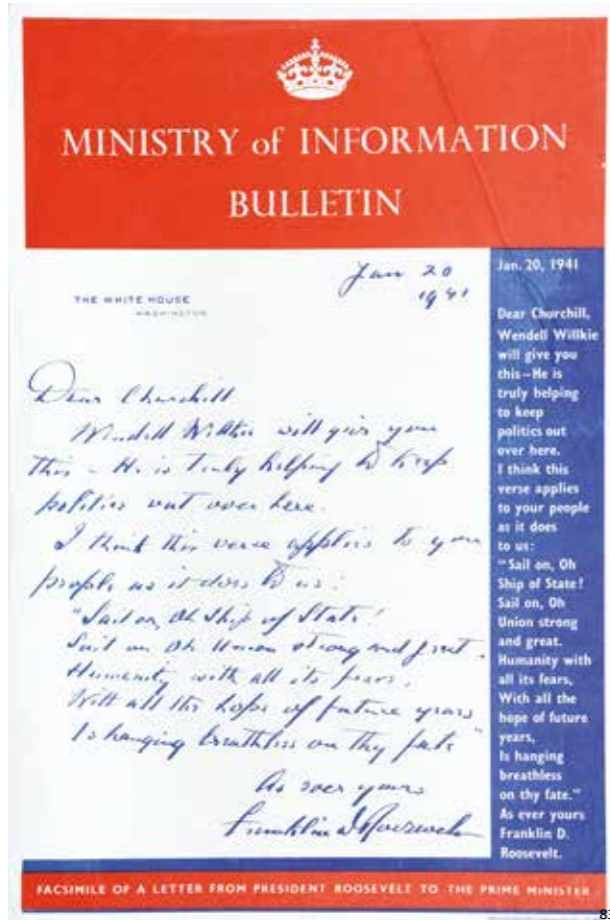 MINISTRY of INFORMATION
BULLETIN
Jan 20
1941
THE WHITE HOUSE
WASHINGTON
Dear Churchill
Wendell Willkie will give you
this - He is truly helping to keep
politics out over here.
I think this verse applies to your
people as it does to us:
"Sail on, Oh Ship of State!
Sail on Oh Union strong and great.
Humanity with all its fears,
With all the hope of future years
Is hanging breathless on thy fate"
As ever yours
Franklin D Roosevelt
Jan. 20, 1941
Dear Churchill,
Wendell Willkie
will give you
this—He is
truly helping
to keep
politics out
over here.
I think this
verse applies
to your people
as it does
to us:
"Sail on, Oh
Ship of State!
Sail on, Oh
Union strong
and great.
Humanity with
all its fears,
With all the
hope of future
years,
Is hanging
breathless
on thy fate."
As ever yours
Franklin D.
Roosevelt.
FACSIMILE OF A LETTER FROM PRESIDENT ROOSEVELT TO THE PRIME MINISTER